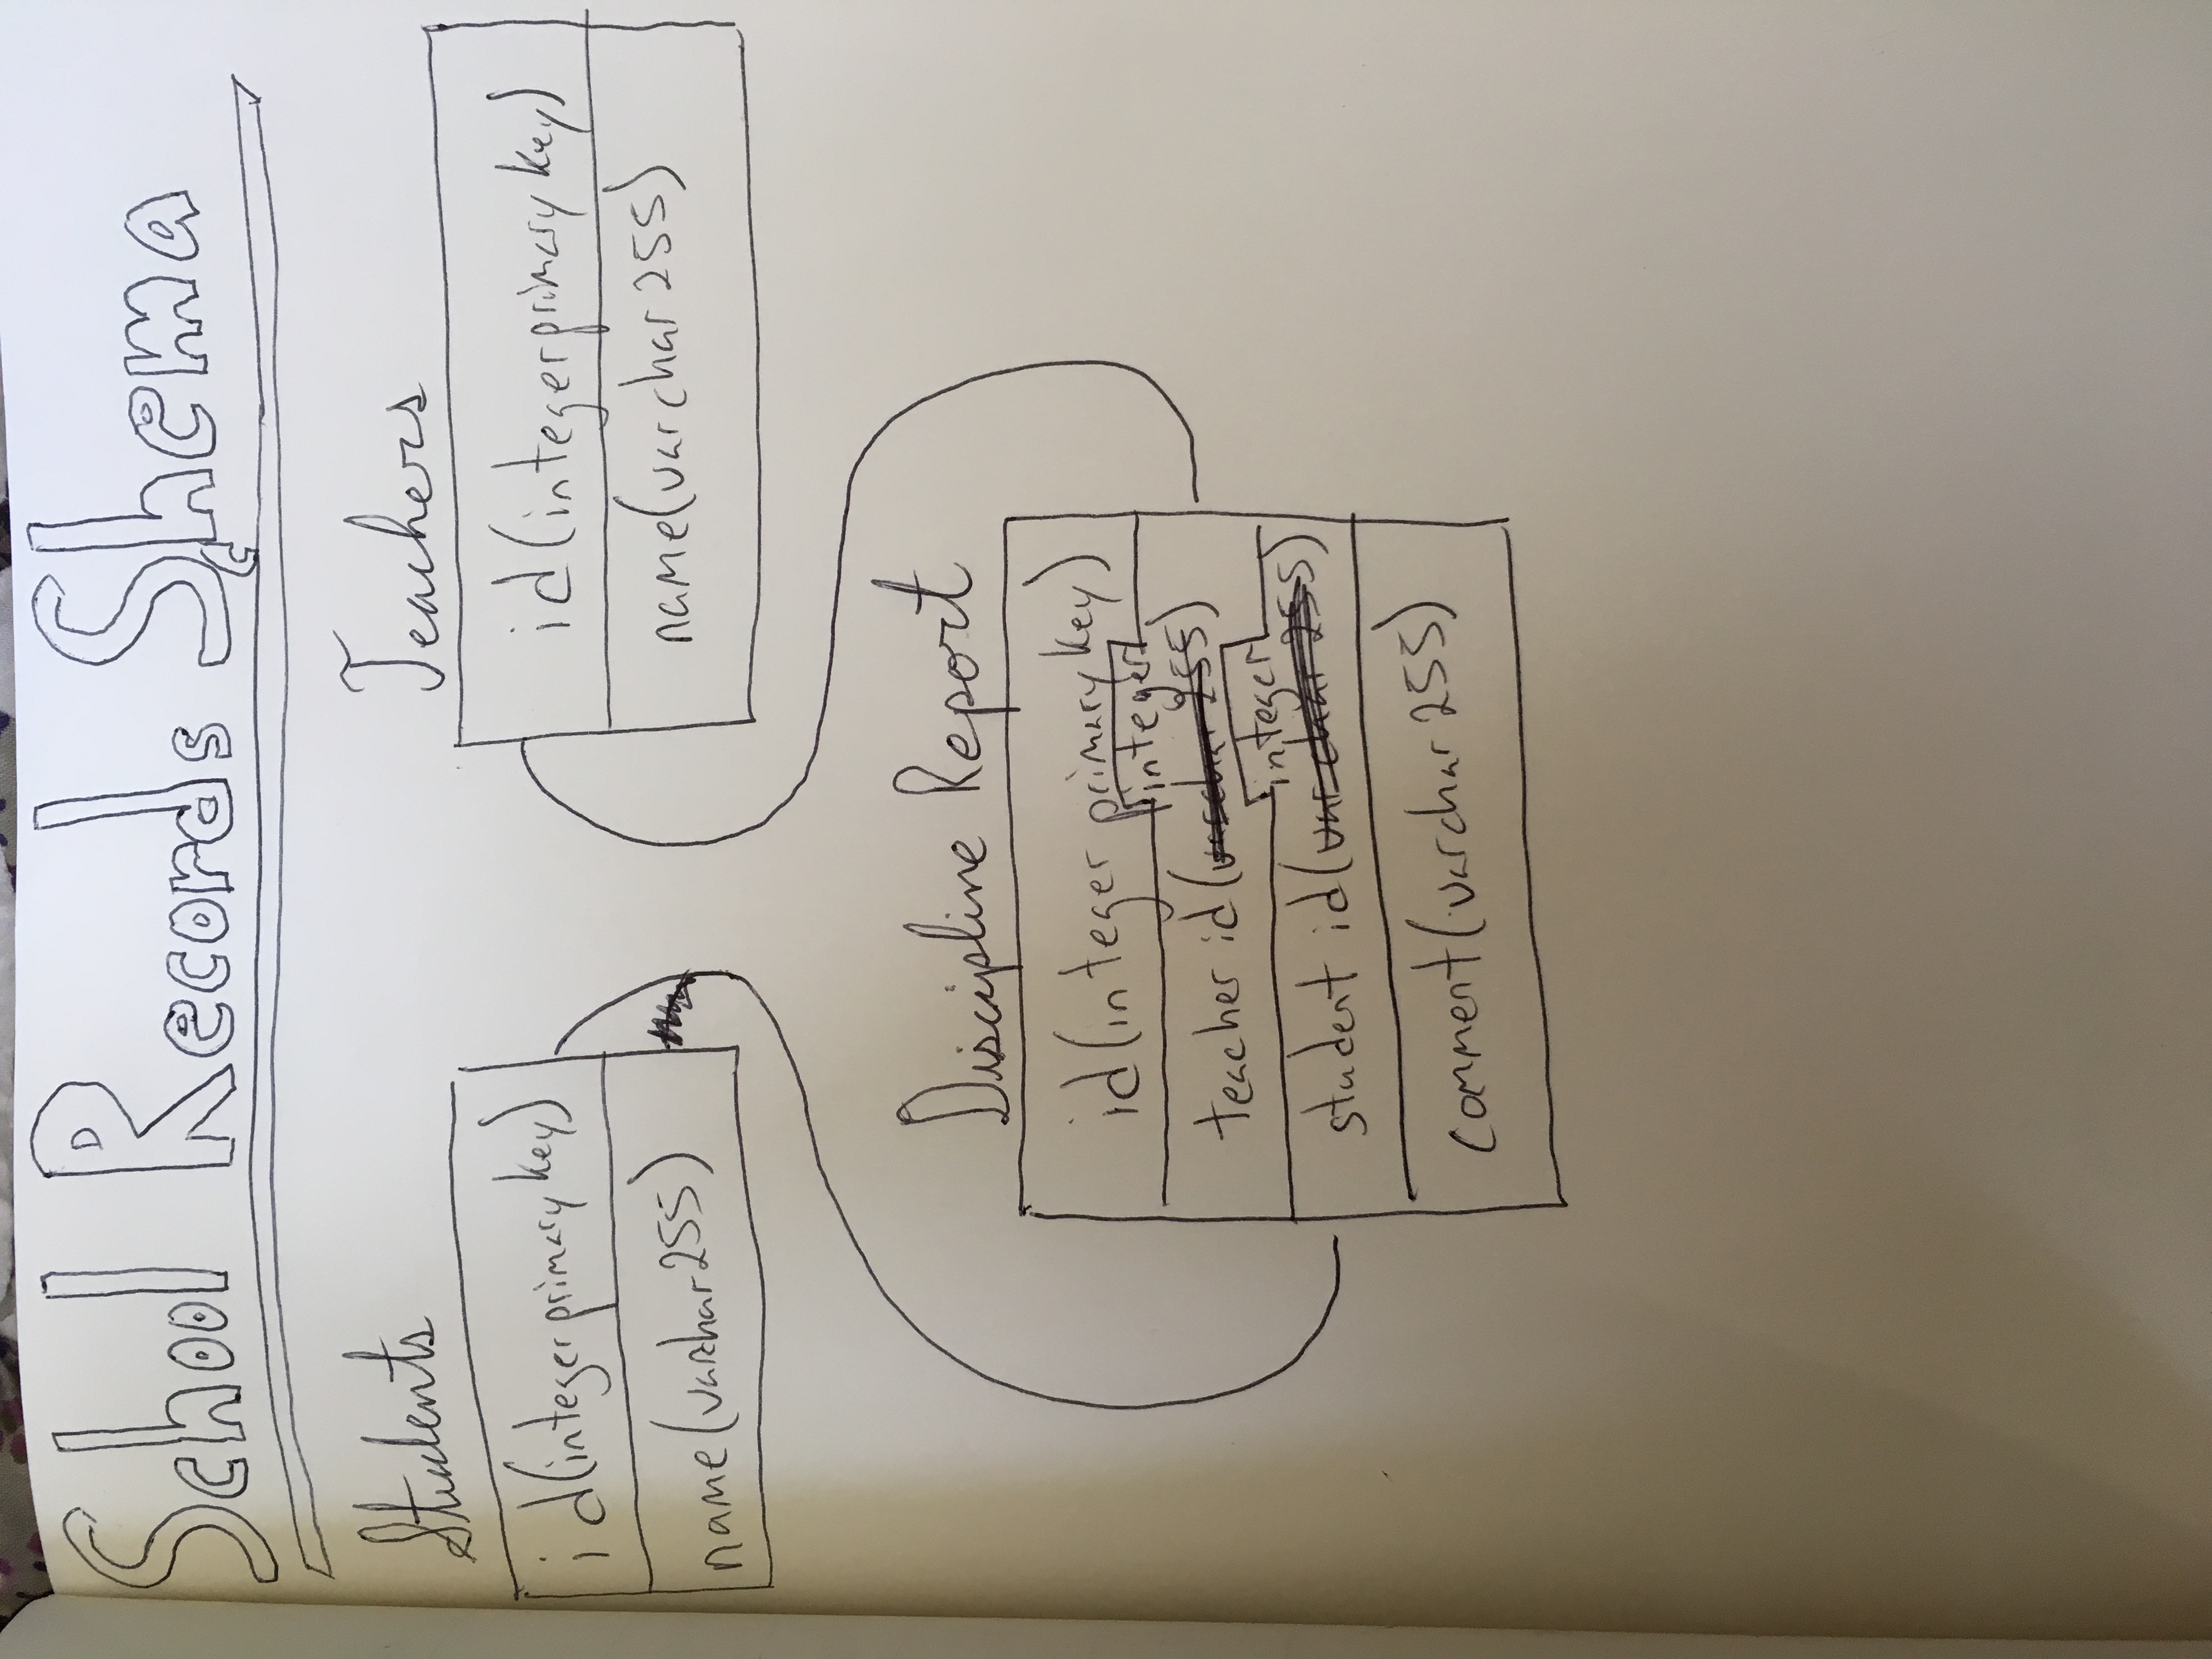 School Records Schema
Students
Teachers
id(integer primary key)
name(varchar 255)
id(integer primary key)
name(varchar 255)
Discipline Report
id(integer primary key)
integer
teacher id(varchar 255)
integer
student id(varchar 255)
comment(varchar 255)